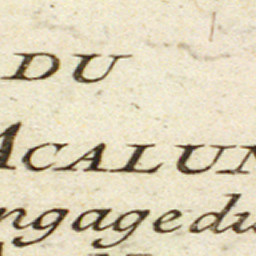 DU
ACALUN
ngage du